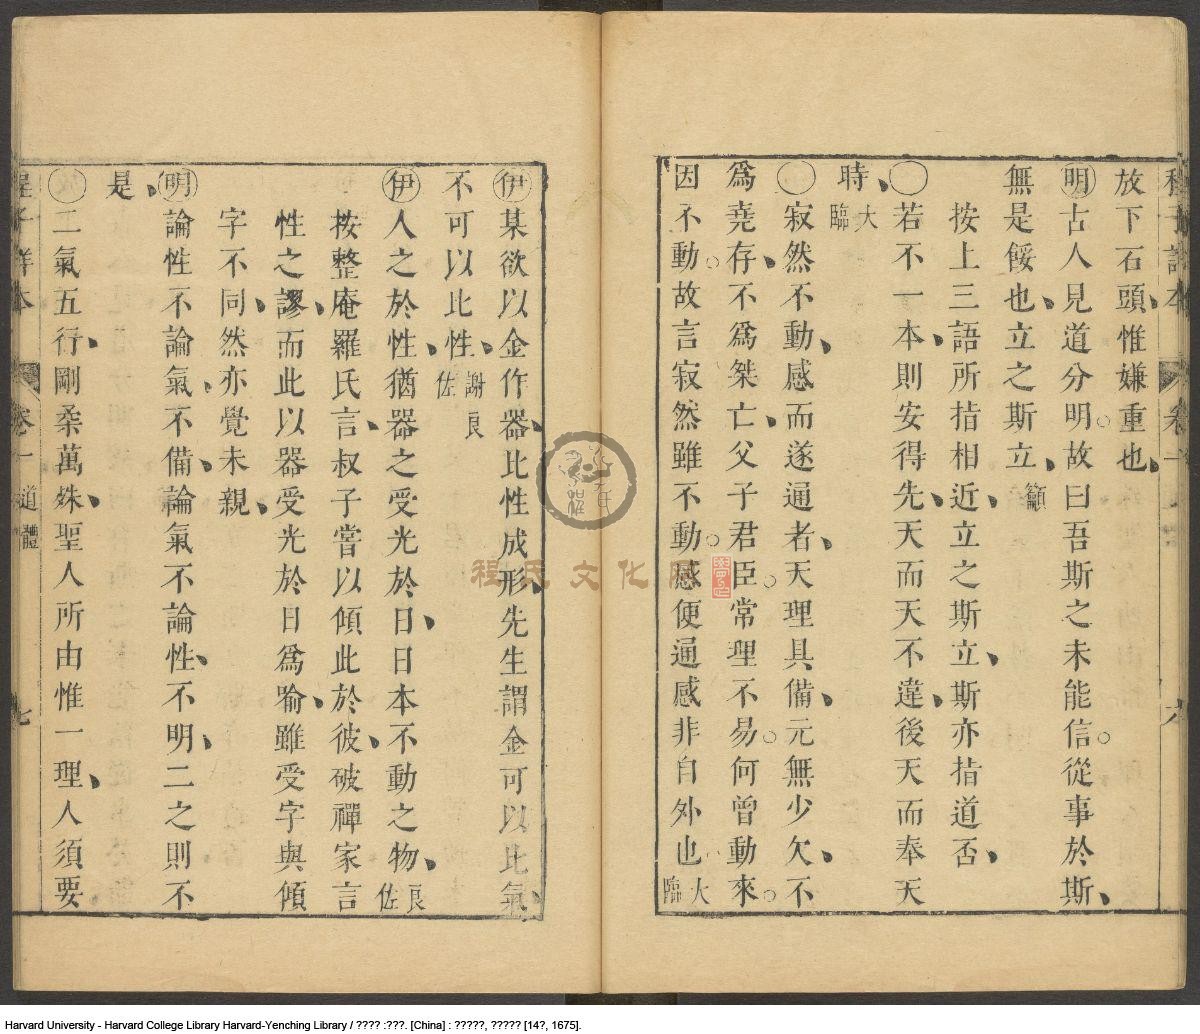 放下石頭惟嫌重也
明古人見道分明故曰吾斯之未能信從事於斯
無是餒也立之斯立籲
按上三語所指相近立之斯立斯亦指道否
〇若不一本則安得先天而天不違後天而奉天
時大臨
〇寂然不動感而遂通者天理具備元無少欠不
為堯存不為桀亡父子君臣常理不易何曾動來
因不動故言寂然雖不動感便通感非自外也大臨
伊某欲以金作器比性成形先生謂金可以比氣
不可以比性謝良佐
伊人之於性猶器之受光於日日本不動之物良佐
按整庵羅氏言叔子嘗以傾此於彼破禪家言
性之謬而此以器受光於日為喻雖受字與傾
字不同然亦覺未親
明論性不論氣不備論氣不論性不明二之則不
是
〇二氣五行剛柔萬殊聖人所由惟一理人須要
卷一 道體 七
程氏文化
Harvard University - Harvard College Library Harvard-Yenching Library / ???? :???. [China] : ?????, ????? [14?, 1675].